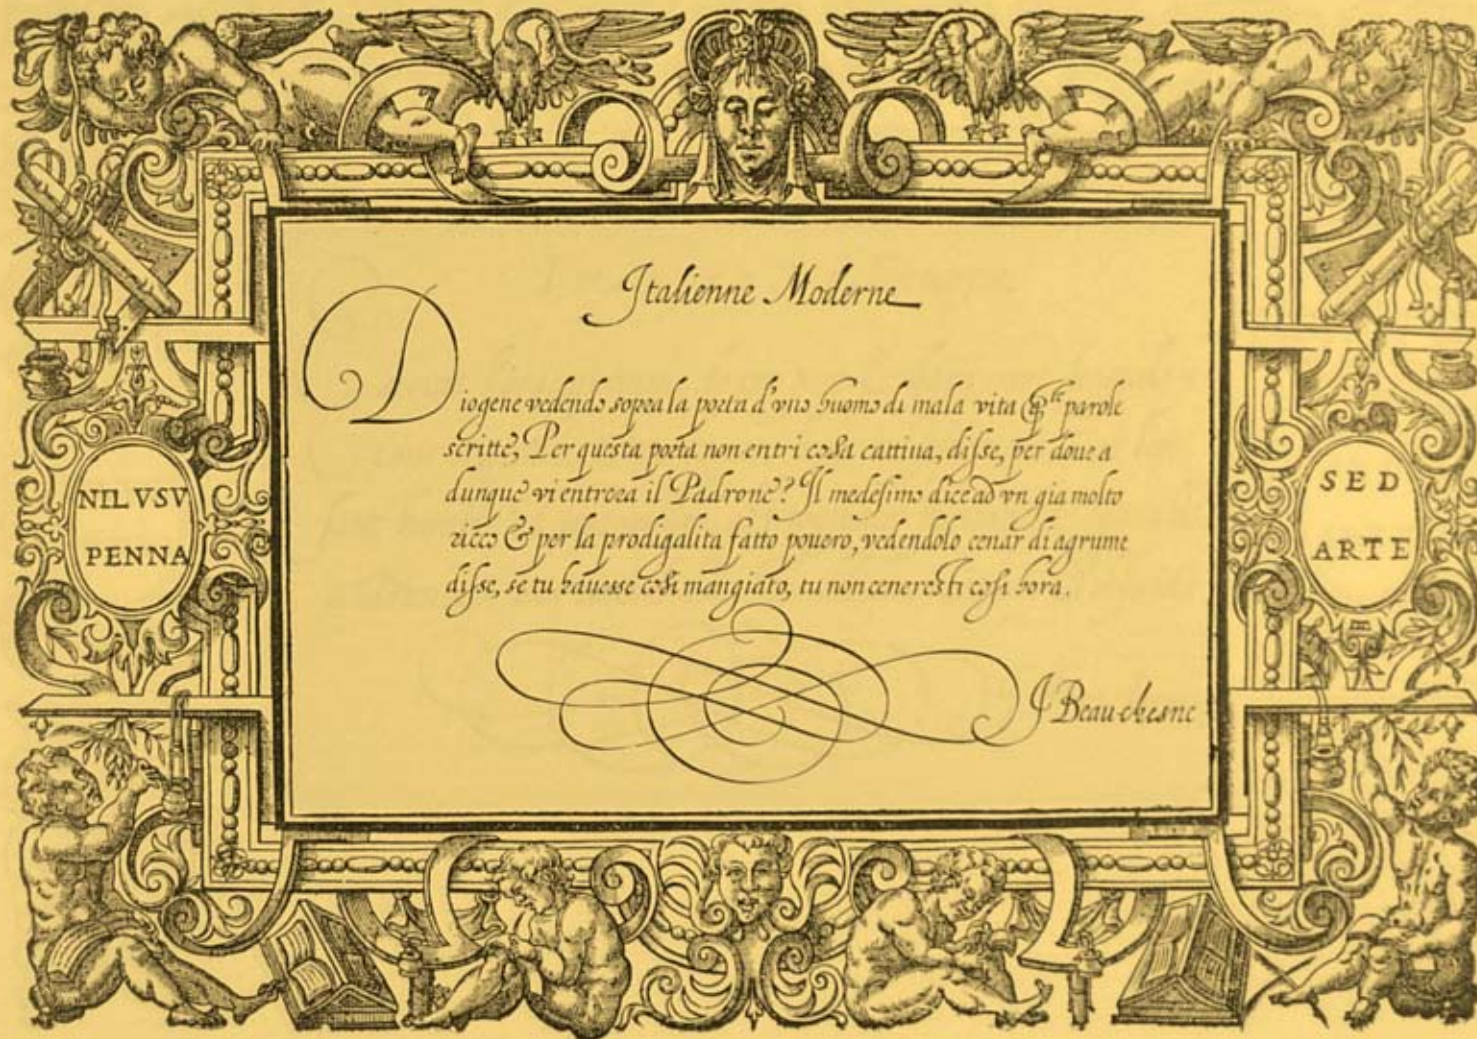 Italienne Moderne
Diogene vedendo sopra la porta d'vno huomo di mala vita q̃ste parole
scritte, Per questa porta non entri cosa cattiua, disse, per doue a
dunque vi entrera il Padrone? Il medesimo dice ad vn gia molto
ricco & per la prodigalita fatto pouero, vedendolo cenar di agrume
disse, se tu hauesse cosi mangiato, tu non ceneresti cosi hora.
J Beauchesne
NIL VSV
PENNA
SED
ARTE